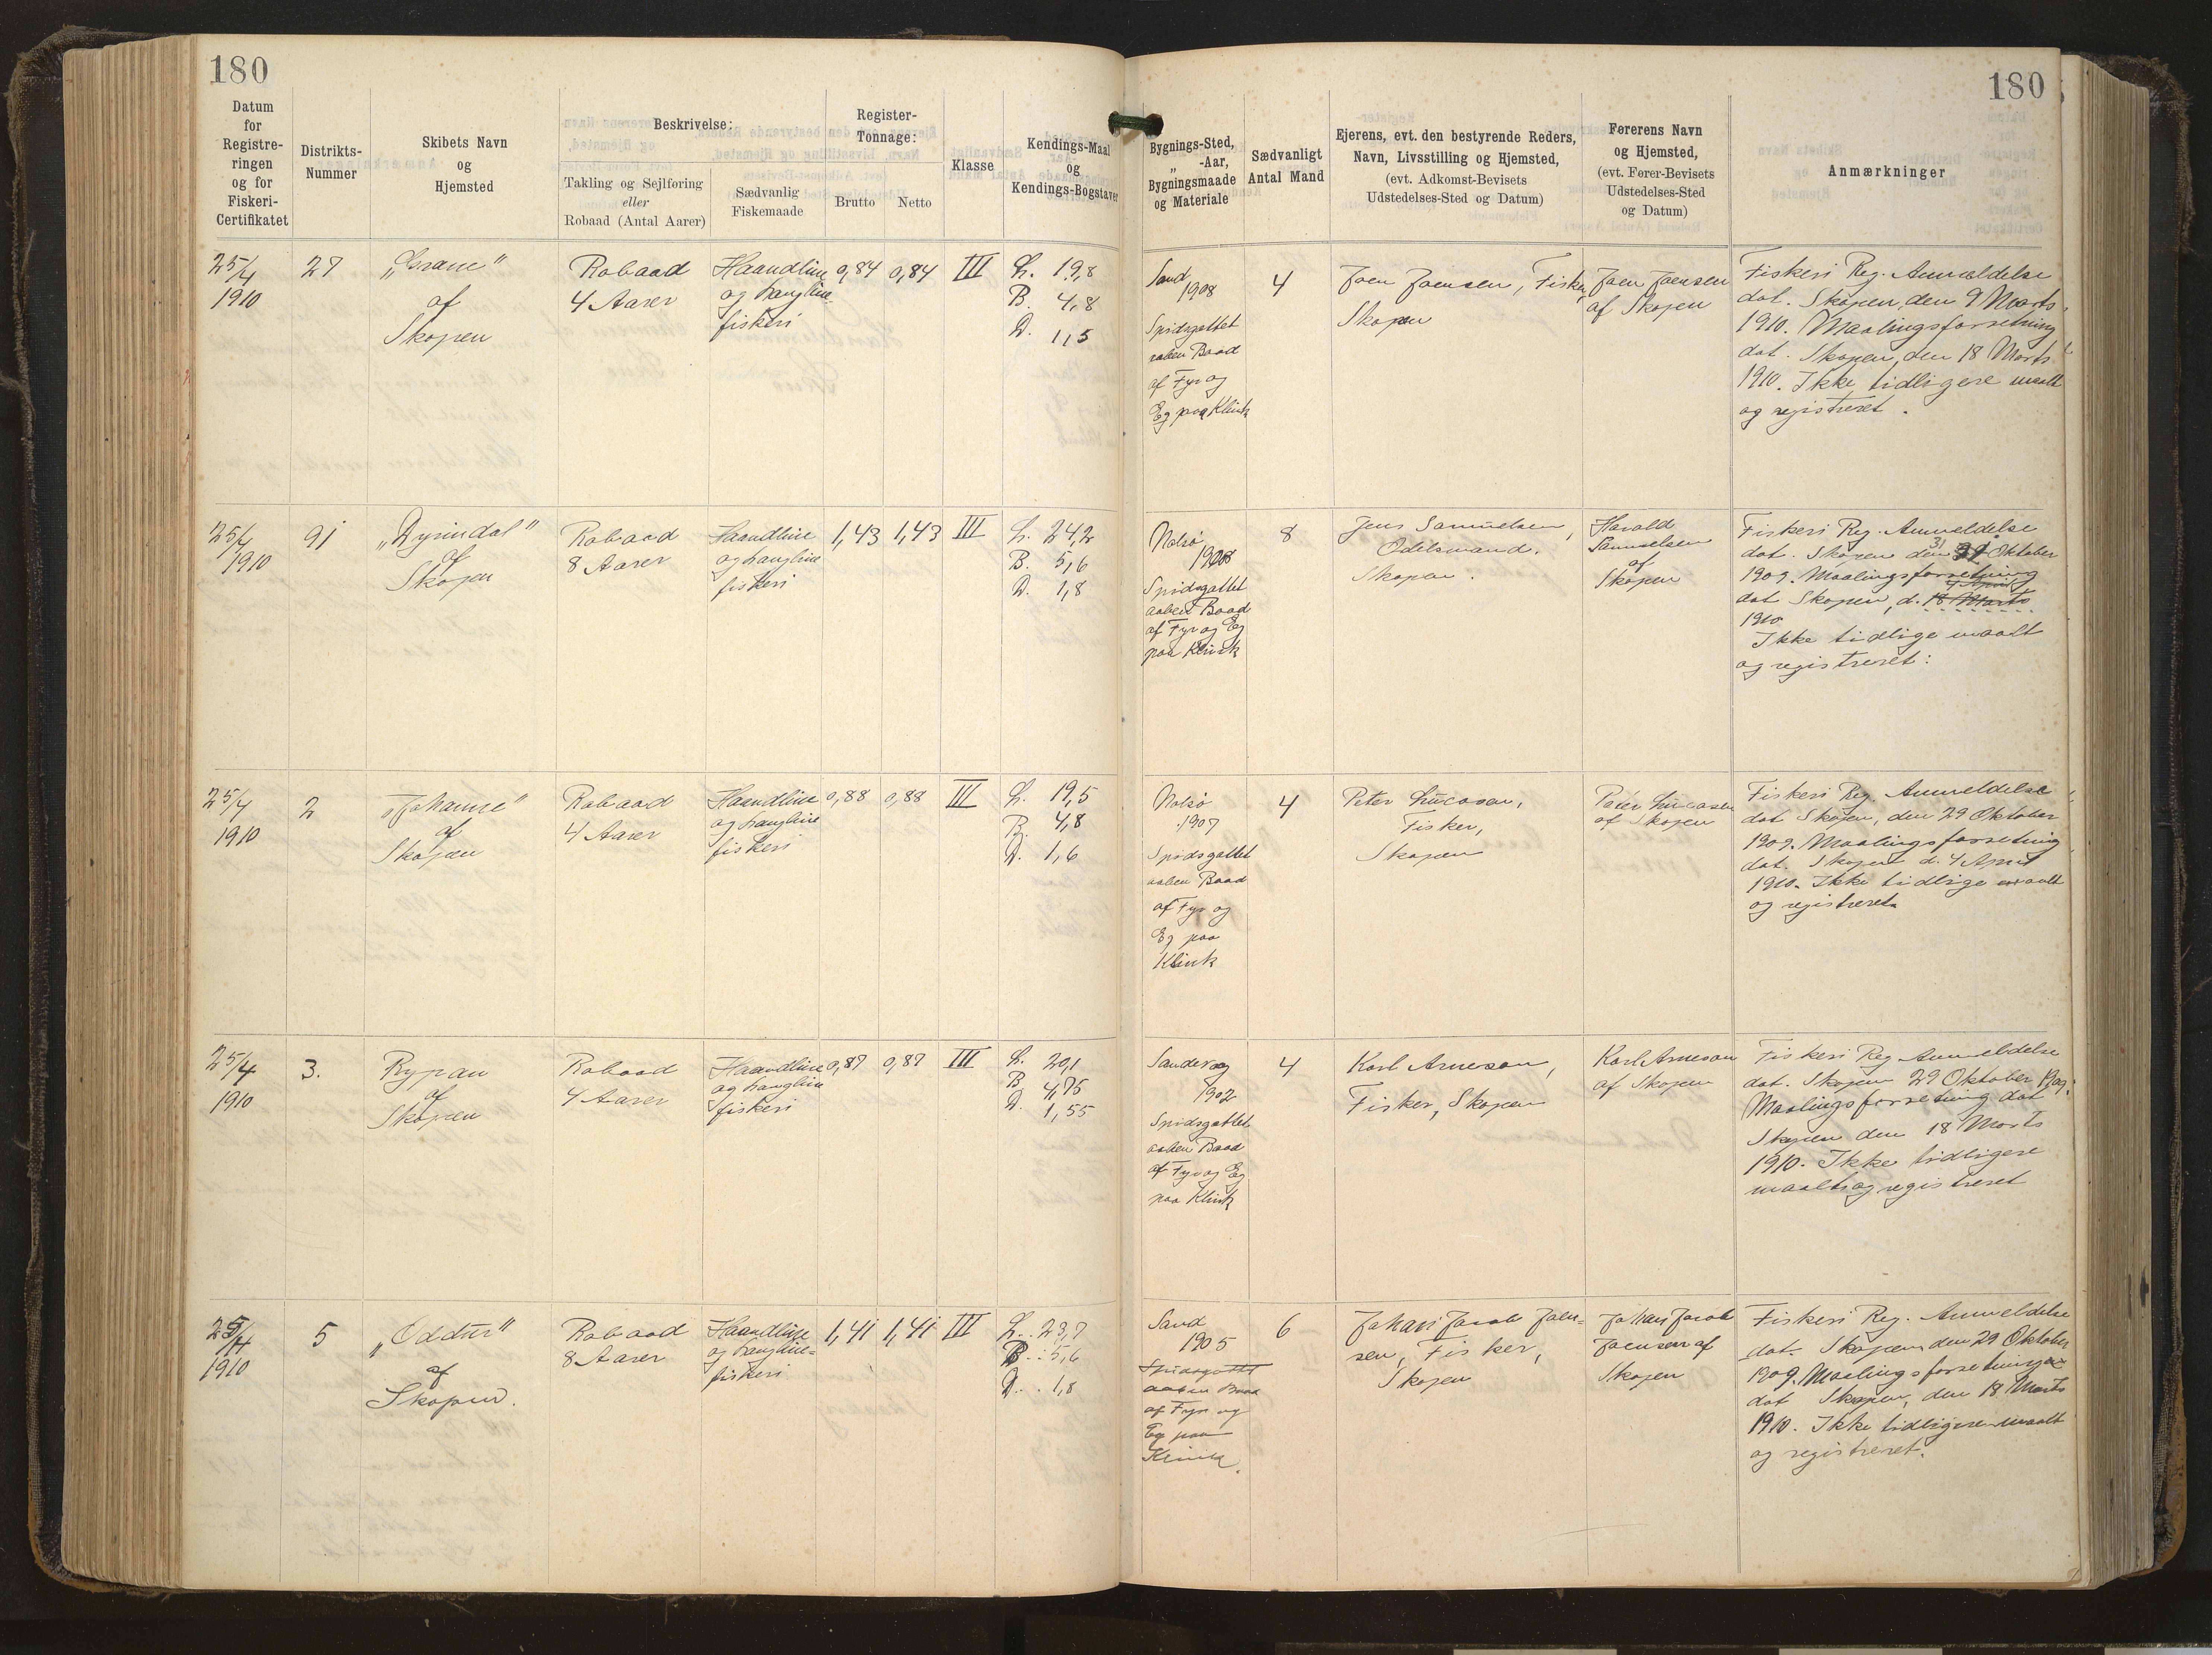 180
180
Datum
for
Registre-
ringen
og for
Fiskeri-
Certifikatet
Distrikts-
Nummer
Skibets Navn
og
Hjemsted
Beskrivelse:
Takling og Sejlføring
eller
Robaad (Antal Aarer)
Sædvanlig
Fiskemaade
Register-
Tonnage:
Brutto
Netto
Klasse
Kendings-Maal
og
Kendings-Bogstaver
Bygnings-Sted,
„ -Aar,
Bygningsmaade
og Materiale
Sædvanligt
Antal Mand
Ejerens, evt. den bestyrende Reders,
Navn, Livsstilling og Hjemsted,
(evt. Adkomst-Bevisets
Udstedelses-Sted og Datum)
Førerens Navn
og Hjemsted,
(evt. Fører-Bevisets
Udstedelses-Sted
og Datum)
Anmærkninger
25/4
1910
27
„Grane"
af
Skopen
Robaad
4 Aarer
Haandline
og Langline
fiskeri
0,84
0,84
III
L. 19,8
B. 4,8
D. 1,5
Sand
1908
Spidsgattet
aaben Baad
af Fyr og
Eg paa Klink
4
Joen Joensen, Fisker
Skopen
Joen Joensen
af Skopen
Fiskeri Reg. Anmeldelse
dat. Skopen, den 9 Marts
1910. Maalingsforretning
dat. Skopen, den 18 Marts
1910. Ikke tidligere maalt
og registreret.
25/4
1910
91
af
Skopen
Robaad
8 Aarer
Haandline
og Langline
fiskeri
1,43
1,43
III
L. 24,2
B. 5,6
D. 1,8
Nolsø
1908
Spidsgattet
aaben Baad
af Fyr og Eg
paa Klink
8
Jens Samuelsen,
Odelsmand.
Skopen.
Harald
Samuelsen
af
Skopen
Fiskeri Reg. Anmeldelse
dat. Skopen den 31 Oktober
1909. Maalingsforretning
4 April
dat Skopen, d. 18 Marts
1910
Ikke tidlige maalt
og registreret:
25/4
1910
2
„Johanne"
af
Skopen
Robaad
4 Aarer
Haandline
og Langline
fiskeri
0,88
0,88
III
L. 19,5
B. 4,8
D. 1,6
Nolsø
1907
Spidsgattet
aaben Baad
af Fyr og
Eg paa
Klink
4
Peter Lucasen,
Fisker,
Skopen
Peter Lucasen
af Skopen
Fiskeri Reg. Anmeldelse
dat Skopen, den 29 Oktober
1909. Maalingsforretning
dat. Skopen d. 4 April
1910. Ikke tidlige maalt
og registreret.
25/4
1910
3.
Rypan
af
Skopen
Robaad
4 Aarer
Haandline
og Langline
fiskeri
0,87
0,87
III
L. 20,1
B. 4,75
D. 1,55
1902
Spidsgattet
aaben Baad
af Fyr og Eg
paa Klink
4
Karl Arneson,
Fisker, Skopen
Karl Arneson
af Skopen
Fiskeri Reg Anmeldelse
dat. Skopen 29 Oktober 1909.
Maalingsforretning dat
Skopen den 18 Marts
1910. Ikke tidligere
maalt og registreret
25/4
1910
5
„Oddur"
af
Skopen.
Robaad
8 Aarer
Haandline
og Langline=
fiskeri
1,41
1,41
III
L. 23,7
B. 5,6
D. 1,8
Sand
1905
Spidsgattet
aaben Baad
af Fyr og
Eg paa
Klink.
6
Johan Jacob Joen=
sen, Fisker,
Skopen
Johan Jacob
Joensen af
Skopen
Fiskeri Reg. Anmeldelse
dat. Skopen den 29 Oktober
1909. Maalingsforretning
dat Skopen, den 18 Marts
1910. Ikke tidligere maalt
og registreret.